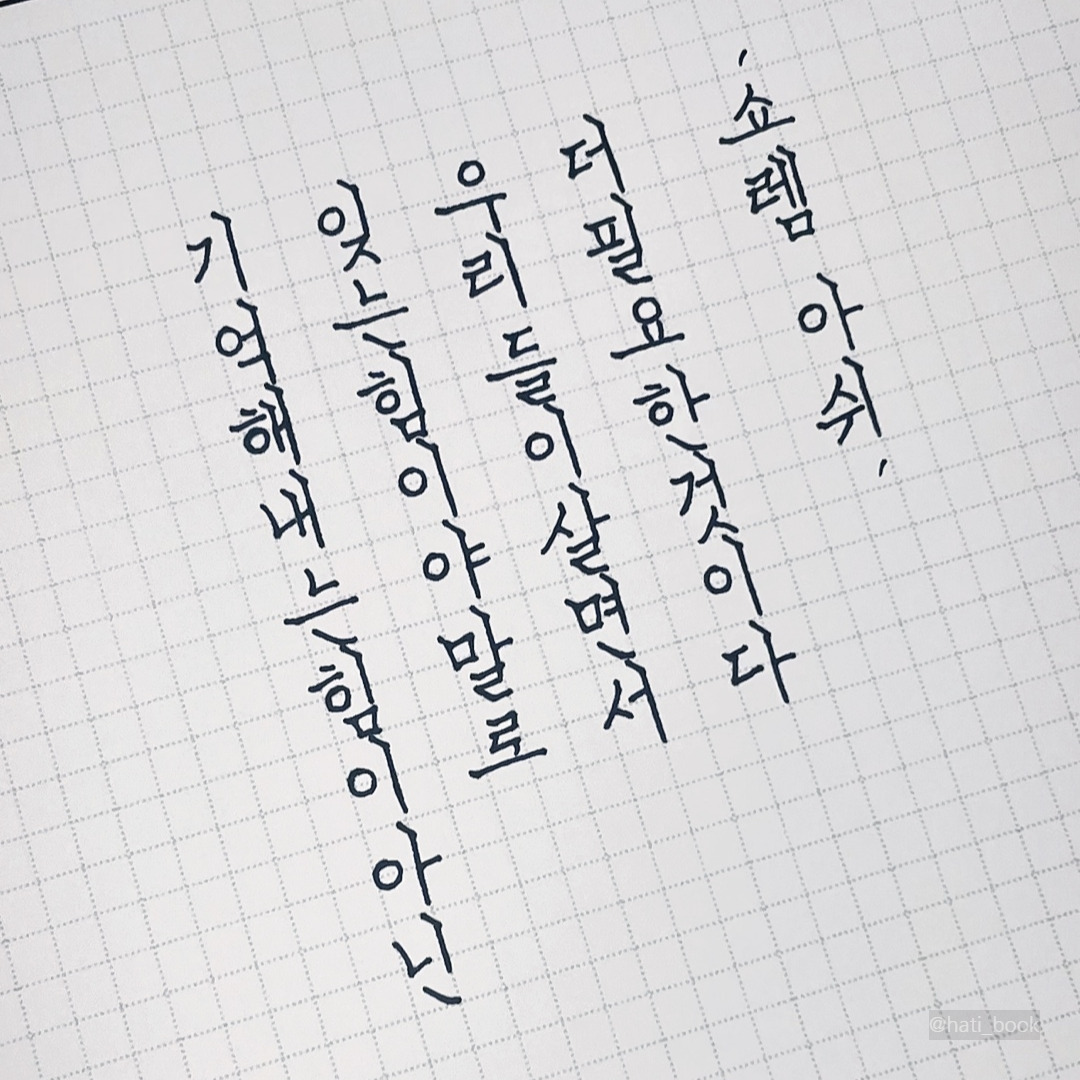 기억해내는힘이아닌
잊는힘이야말로
우리들이살면서
더필요한것이다
'쇼렘 아쉬'
@hati_book